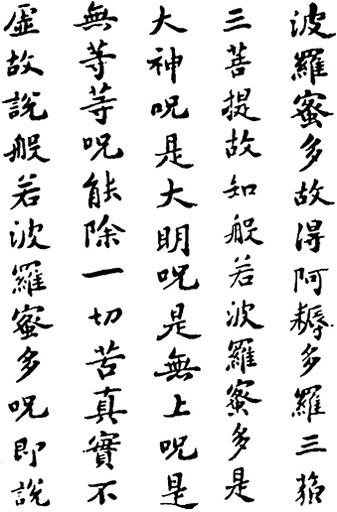 波羅蜜多故得阿耨多羅三藐
三菩提故知般若波羅蜜多是
大神呪是大明呪是無上呪是
無等等呪能除一切苦真實不
虛故說般若波羅蜜多呪即說